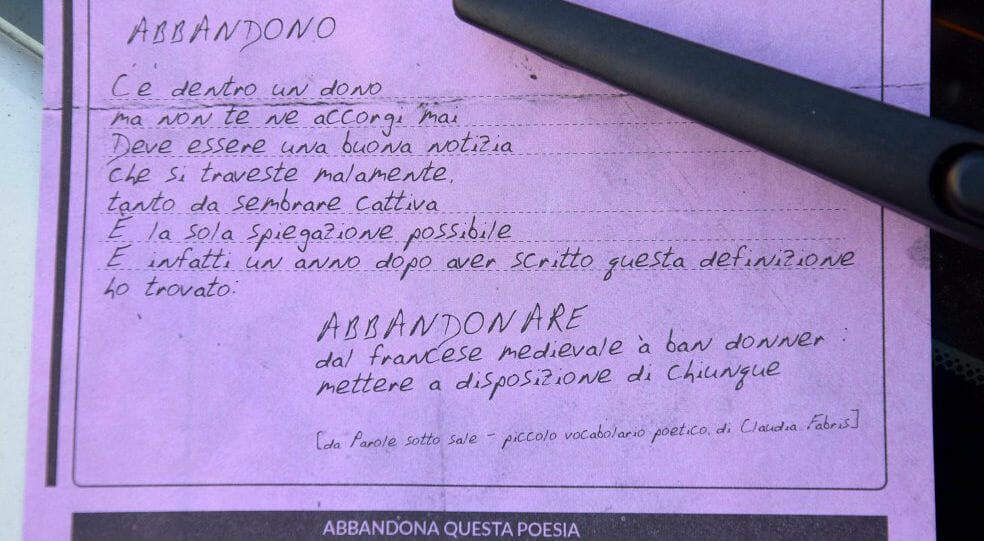 ABBANDONO
C'è dentro un dono
ma non te ne accorgi mai
Deve essere una buona notizia
che si traveste malamente,
tanto da sembrare cattiva
È la sola spiegazione possibile
E infatti un anno dopo aver scritto questa definizione
ho trovato:
ABBANDONARE
dal francese medievale à ban donner:
mettere a disposizione di chiunque
[da Parole sotto sale - piccolo vocabolario poetico, di Claudia Fabris]
ABBANDONA QUESTA POESIA